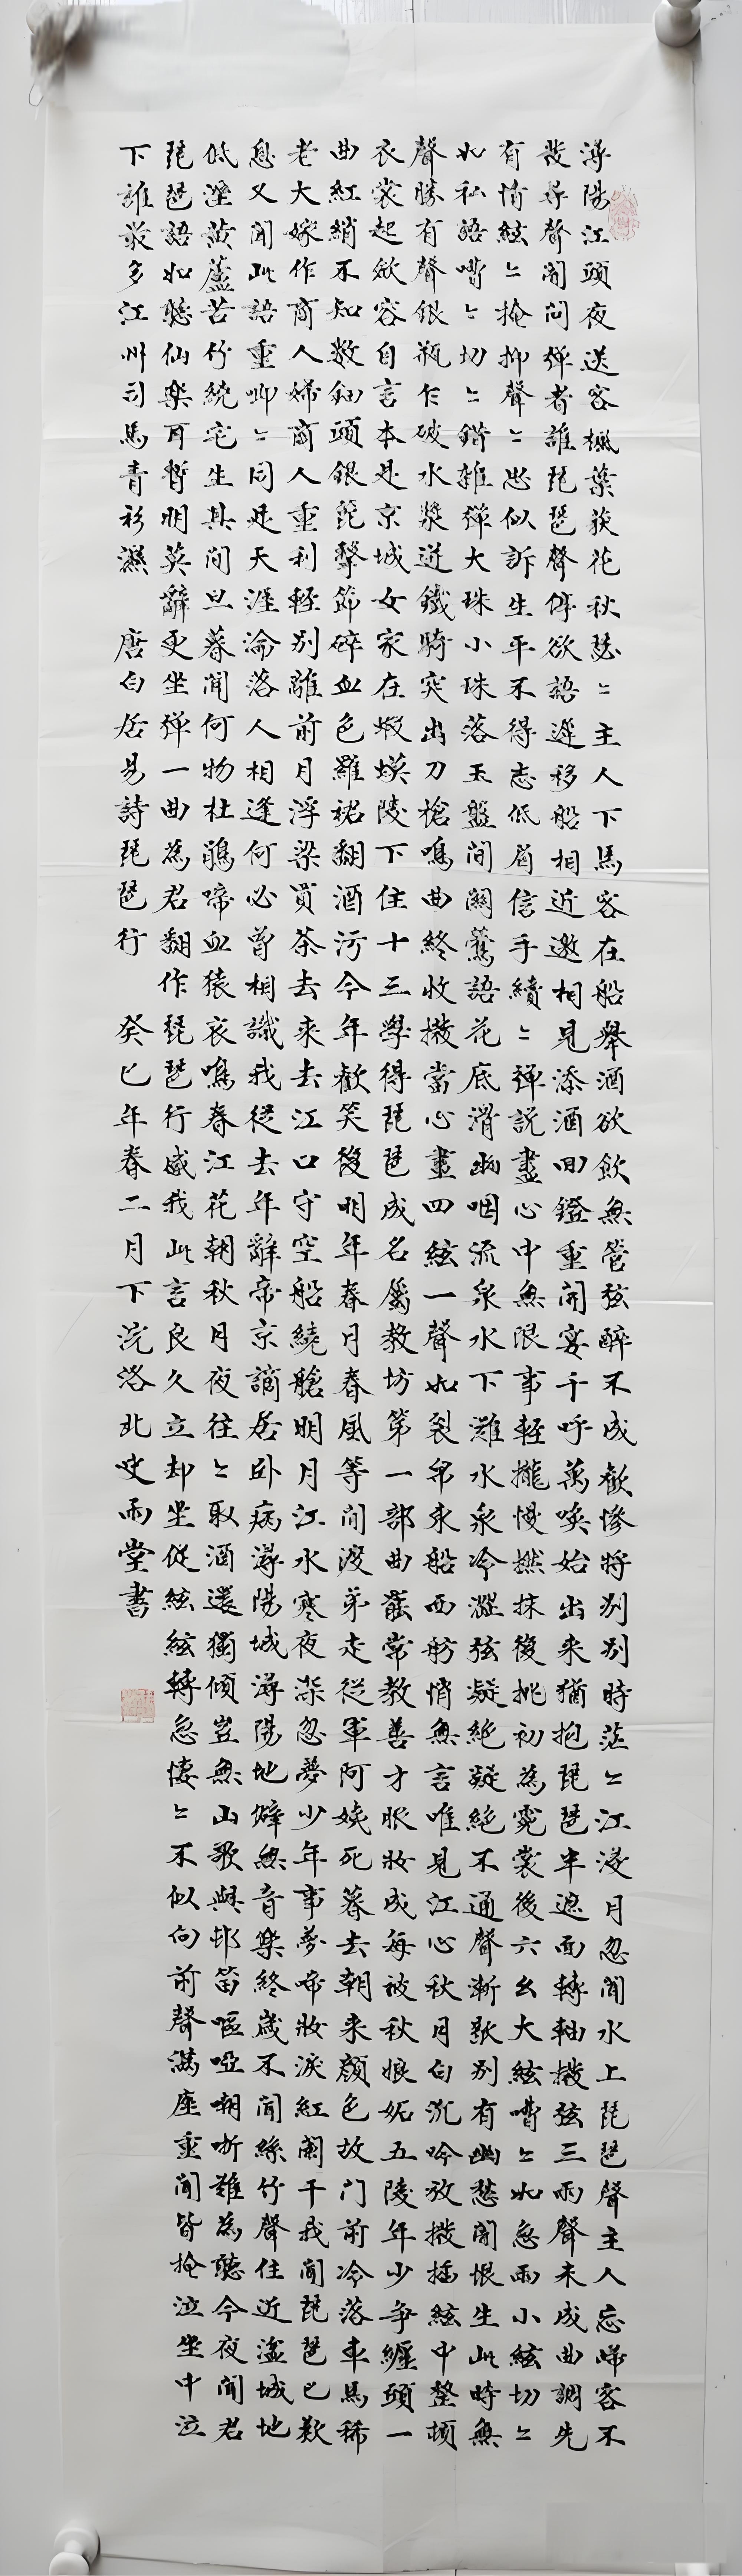 潯陽江頭夜送客楓葉荻花秋瑟〻主人下馬客在船舉酒欲飲無管弦醉不成歡慘將别别時茫〻江浸月忽聞水上琵琶聲主人忘歸客不
發尋聲闇问弹者誰琵琶聲停欲語遲移船相近邀相見添酒回鐙重開宴千呼萬喚始出来猶抱琵琶半遮面轉軸撥弦三兩聲未成曲調先
有情絃〻掩抑聲〻思似訴生平不得志低眉信手續〻弹説盡心中無限事輕攏慢撚抹復挑初為霓裳後六幺大絃嘈〻如急雨小絃切〻
如私語嘈〻切〻錯雜弹大珠小珠落玉盤间關鶯語花底滑幽咽流泉水下灘水泉冷澀弦凝絶凝絶不通聲漸歇别有幽愁闇恨生此時無
聲勝有聲銀瓶乍破水漿迸鐵騎突出刀槍鳴曲終收撥當心畫四絃一聲如裂帛東船西舫悄無言唯見江心秋月白沉吟放撥插絃中整頓
衣裳起斂容自言本是京城女家在蝦蟆陵下住十三學得琵琶成名屬教坊第一部曲罷常教善才服妝成每被秋娘妬五陵年少争纏頭一
曲紅綃不知数鈿頭銀篦擊節碎血色羅裙翻酒污今年歡笑復明年春月春風等闲渡弟走從軍阿姨死暮去朝来顔色故门前冷落車馬稀
老大嫁作商人婦商人重利輕别離前月浮梁買茶去来去江口守空船繞艙明月江水寒夜深忽夢少年事夢啼妝淚紅闌干我聞琵琶已歎
息又聞此語重唧〻同是天涯淪落人相逢何必曾相識我從去年辭帝京謫居卧病潯陽城潯陽地僻無音樂終歲不聞絲竹聲住近湓城地
低溼黄蘆苦竹繞宅生其间旦暮聞何物杜鵑啼血猿哀鳴春江花朝秋月夜往〻取酒還獨傾豈無山歌與邨笛嘔啞嘲哳難為聽今夜聞君
琵琶語如聽仙樂耳暫明莫辭更坐弹一曲為君翻作琵琶行感我此言良久立却坐促絃絃轉急悽〻不似向前聲滿座重聞皆掩泣坐中泣
下誰最多江州司馬青衫濕 唐白居易詩琵琶行 癸巳年春二月下浣洛北史雨堂書